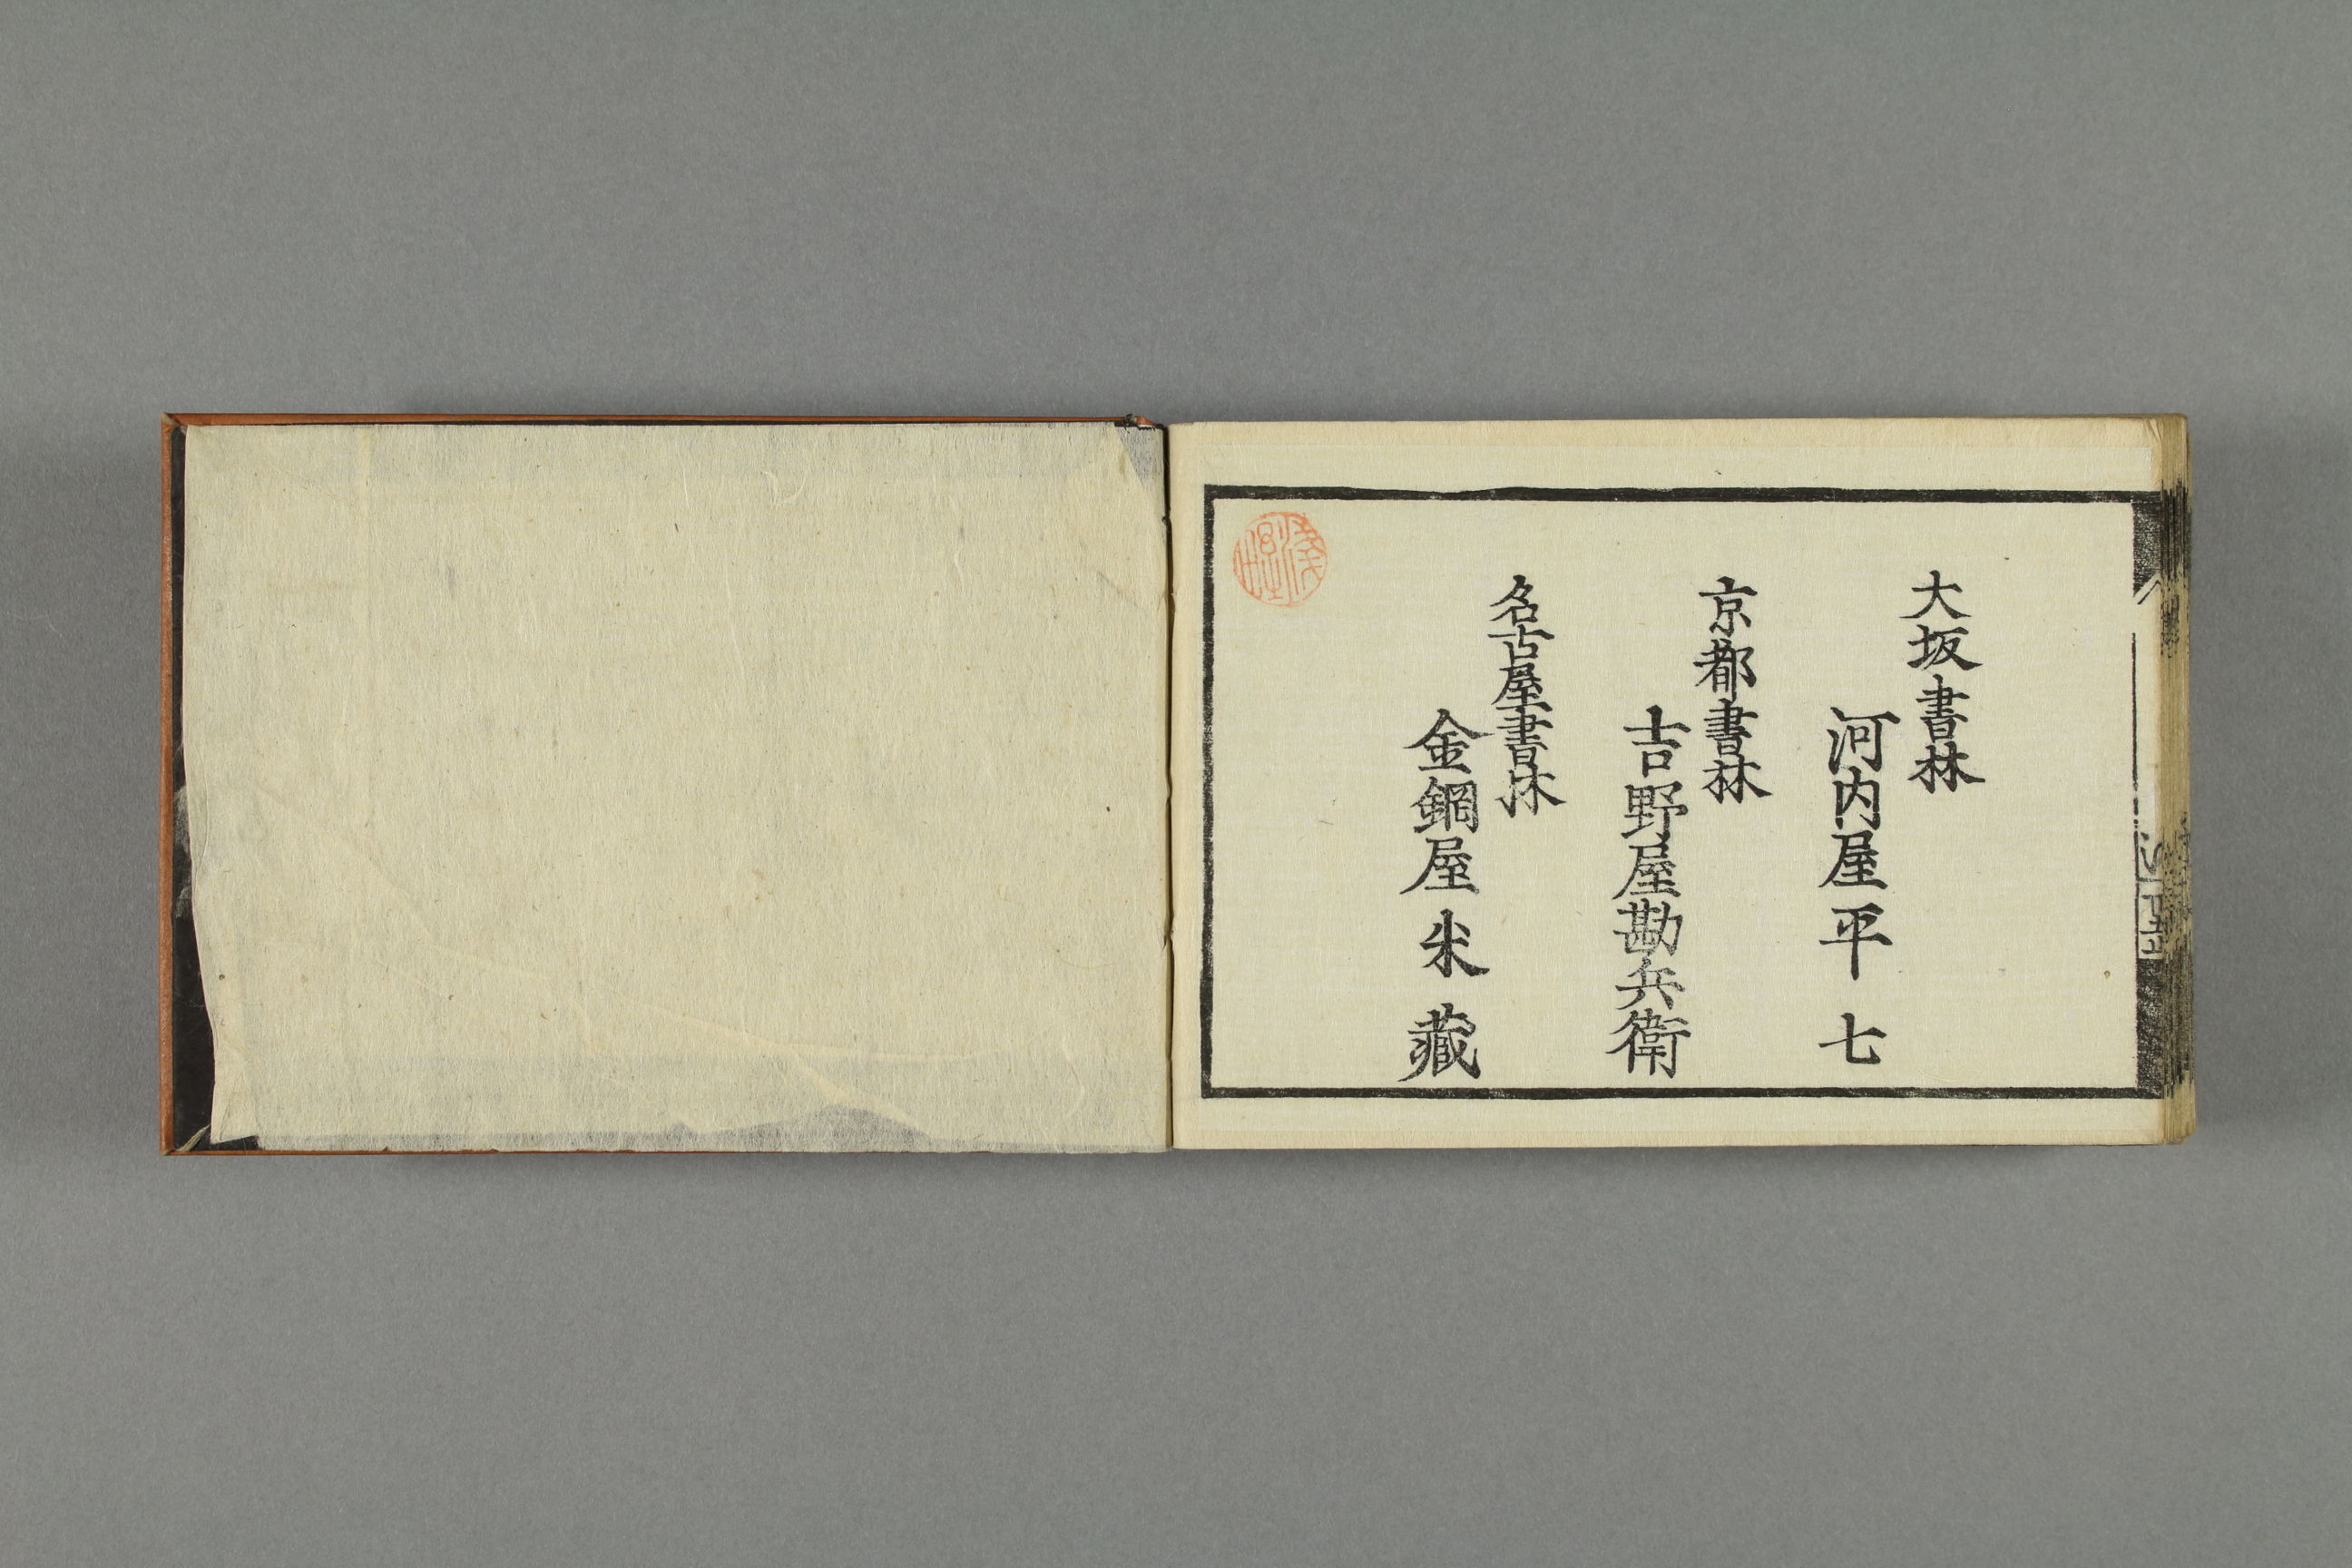 大坂書林
河内屋平七
京都書林
吉野屋勘兵衛
名古屋書林
金網屋米藏